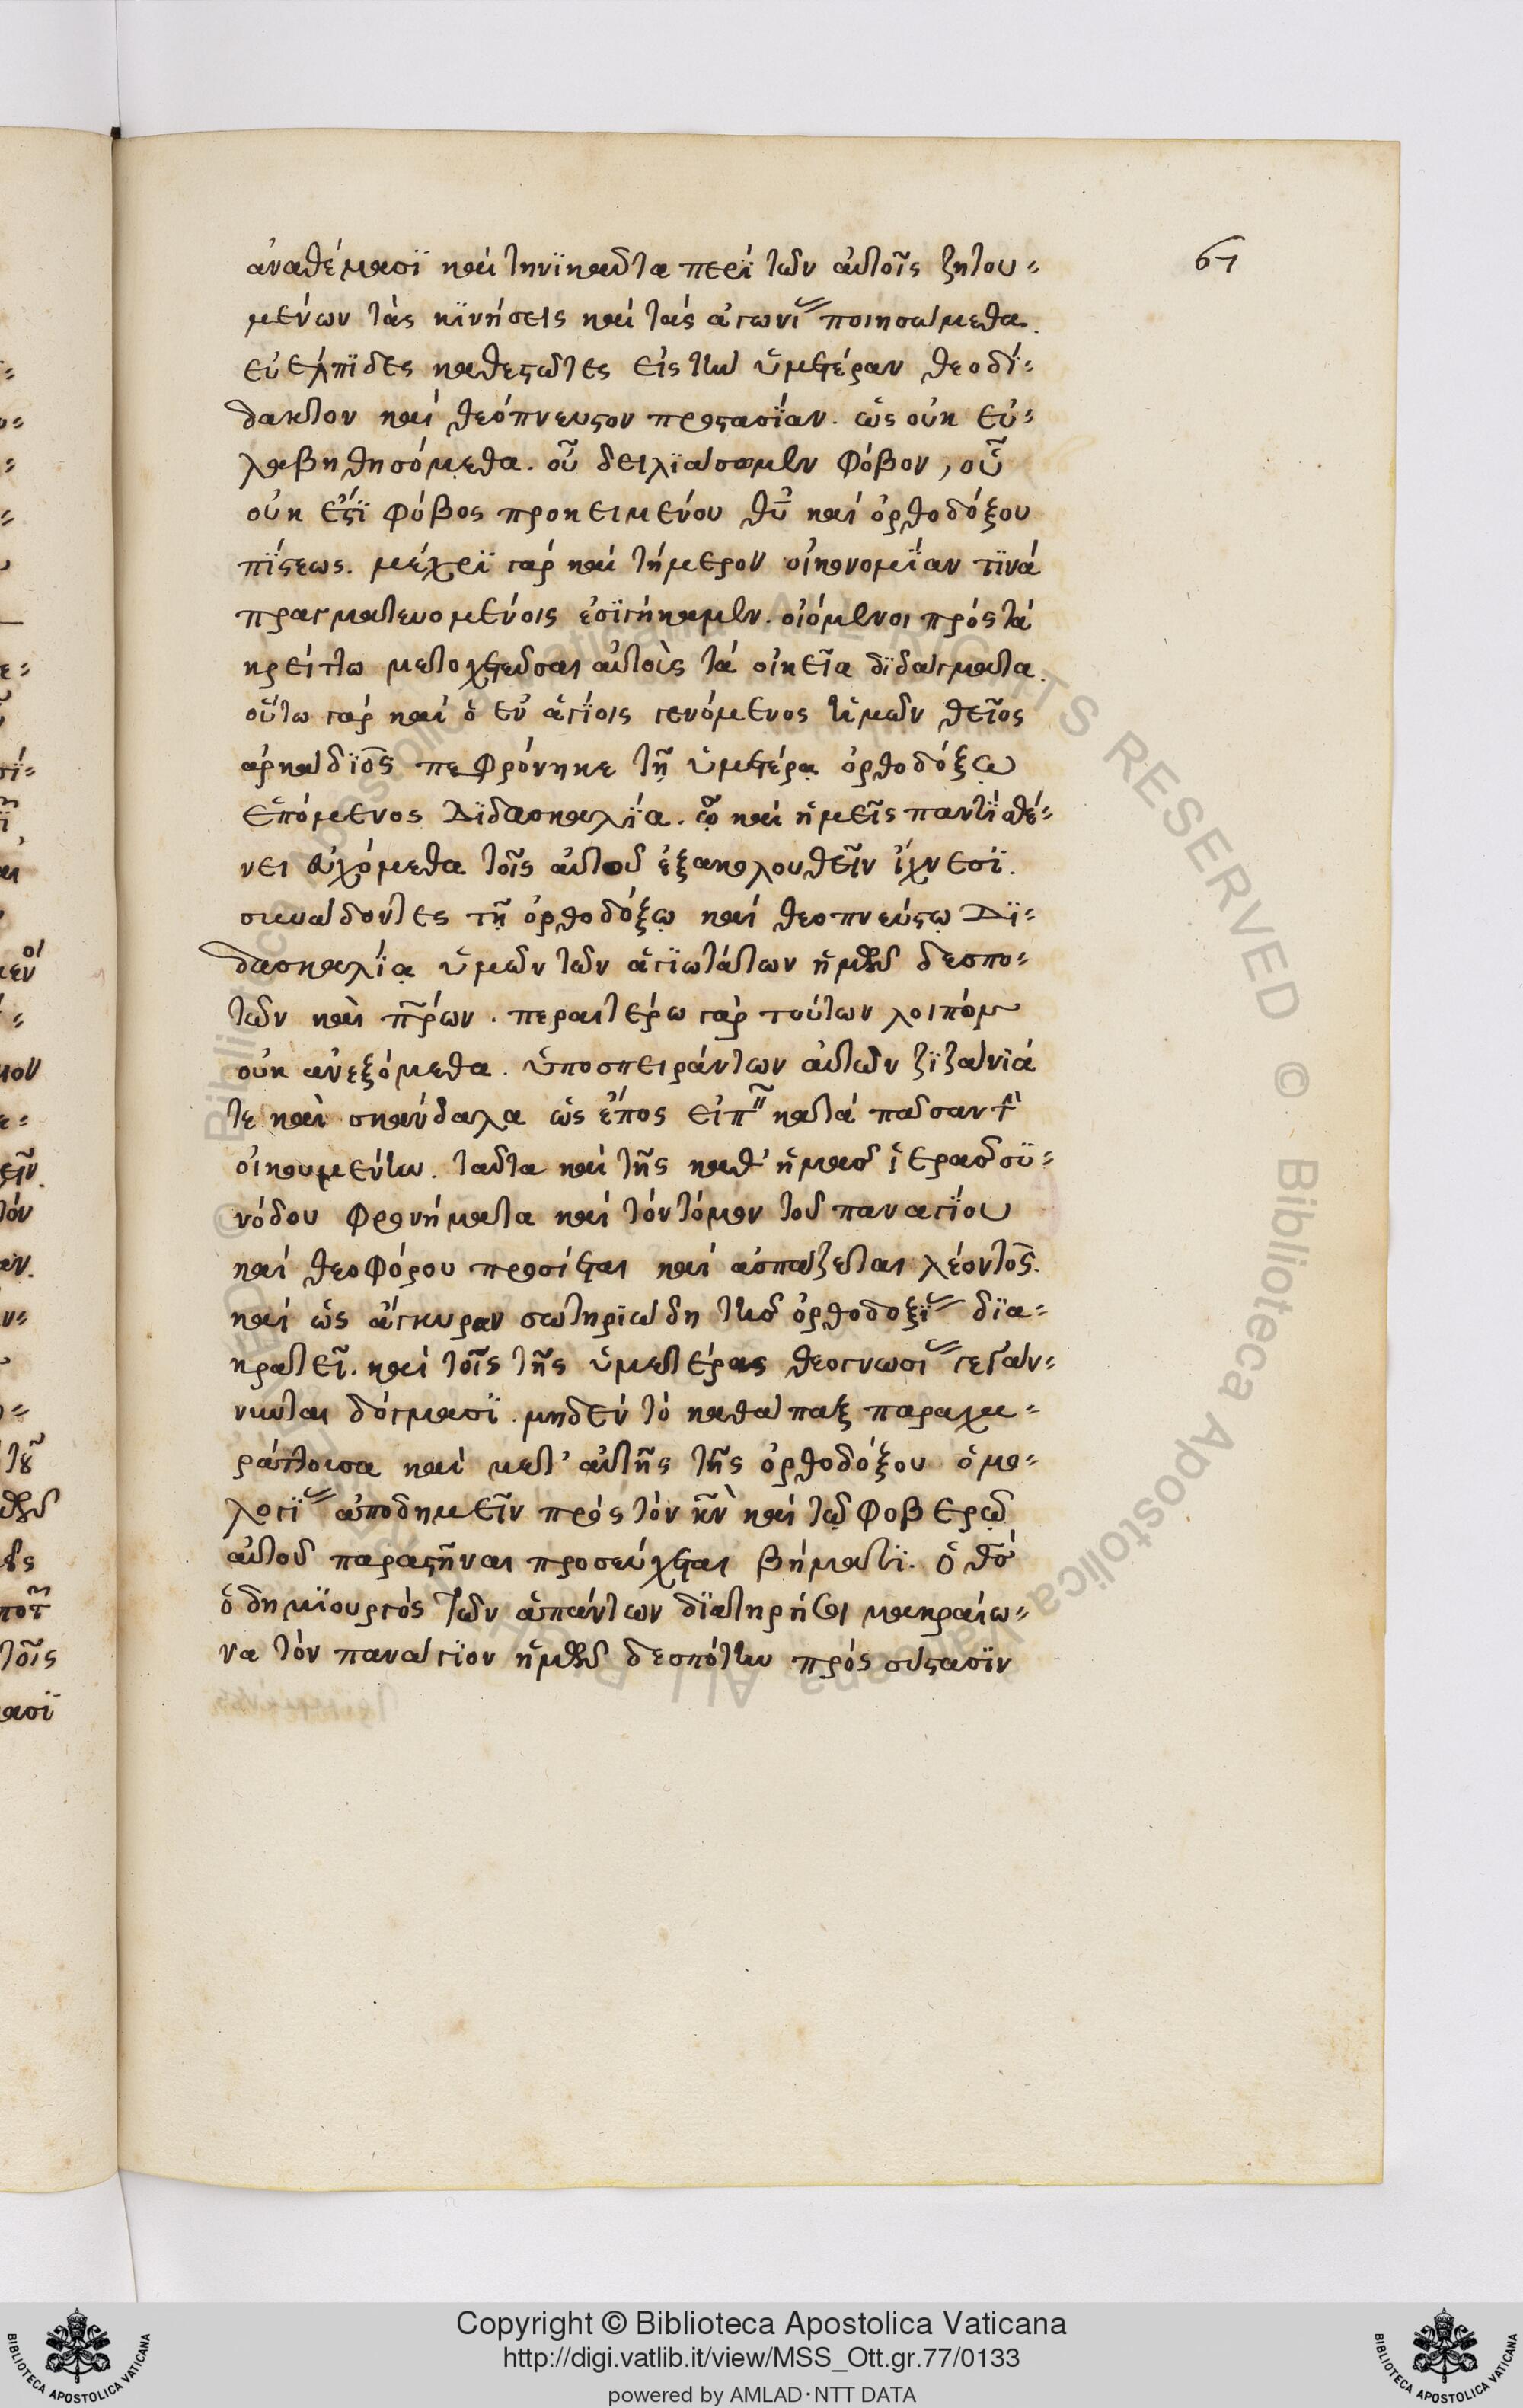 61
ἀναθέμασϊ καὶ τηνϊκαῦτα περϊ τῶν αὐτοῖς ζητου-
μένων τὰς κϊνήσεις καὶ τὰς ἀγωνί ποιησώμεθα.
εὐέλπϊδες καθεςῶτες εἰς τὴν ὑμετέραν θεοδί-
δακτον καὶ θεόπνευςον προςασΐαν. ὡς οὐκ εὐ-
λαβηθησόμεθα. οὗ δειλϊάσωμεν φόβον, οὗ
οὐκ ἔςϊ φόβος προκειμένου θῦ καὶ ὀρθοδόξου
πΐςεως. μέχρϊ γὰρ καὶ τήμερον οἰκονομΐαν τϊνά
πραγματευομένοις ἐσϊγήκαμεν. οἰόμενοι πρὸς τὰ
κρείττω μετοχετεῦσαι αὐτοὺς τὰ οἰκεῖα δϊδάγματα.
οὕτω γὰρ καὶ ὁ ἐν ἁγΐοις γενόμενος ἡμῶν θεῖος
ἀρκάδϊος πεφρόνηκε τῇ ὑμετέρᾳ ὀρθοδόξῳ
ἑπόμενος Δϊδασκαλΐα. ᾧ καὶ ἡμεῖς παντϊ σθέ-
νει εὐχόμεθα τοῖς αὐτοῦ ἐξακολουθεῖν ἴχνεσϊ.
συνάδοντες τῇ ὀρθοδόξῳ καὶ θεοπνεύςῳ Δϊ-
δασκαλΐᾳ ὑμῶν τῶν ἁγϊωτάτων ἡμῶν δεσπο-
τῶν καὶ πρων. περαιτέρω γὰρ τούτων λοιπόν
οὐκ ἀνεξόμεθα. ὑποσπειράντων αὐτῶν ζϊζάνϊά
τε καὶ σκάνδαλα ὡς ἔπος εἰπ κατὰ πᾶσαν τ
οἰκουμένην. ταῦτα καὶ τῆς καθ' ἡμᾶς ἱερᾶς συ-
νόδου φρονήματα καὶ τὸν τόμον τοῦ παναγΐου
καὶ θεοφόρου προσίεται καὶ ἀσπάζεται λέοντος.
καὶ ὡς ἄγκυραν σωτηριώδη τῆς ὀρθοδοξΐ δϊα-
κρατεῖ. καὶ τοῖς τῆς ὑμετέρας θεογνωσΐ γεγάν-
νυται δόγμασϊ. μηδὲν τὸ καθάπαξ παραχα-
ράττουσα καὶ μετ' αὐτῆς τῆς ὀρθοδόξου ὁμο-
λογΐ ἀποδημεῖν πρὸς τὸν κν καὶ τῷ φοβερῷ
αὐτοῦ παραςῆναι προσεύχεται βήματϊ. ὁ θς
ὁ δημϊουργὸς τῶν ἁπάντων δϊατηρήσει μακραίω-
να τὸν πανάγϊον ἡμῶν δεσπότην πρὸς σύςασϊν
Copyright © Biblioteca Apostolica Vaticana
http://digi.vatlib.it/view/MSS_Ott.gr.77/0133
powered by AMLAD·NTT DATA